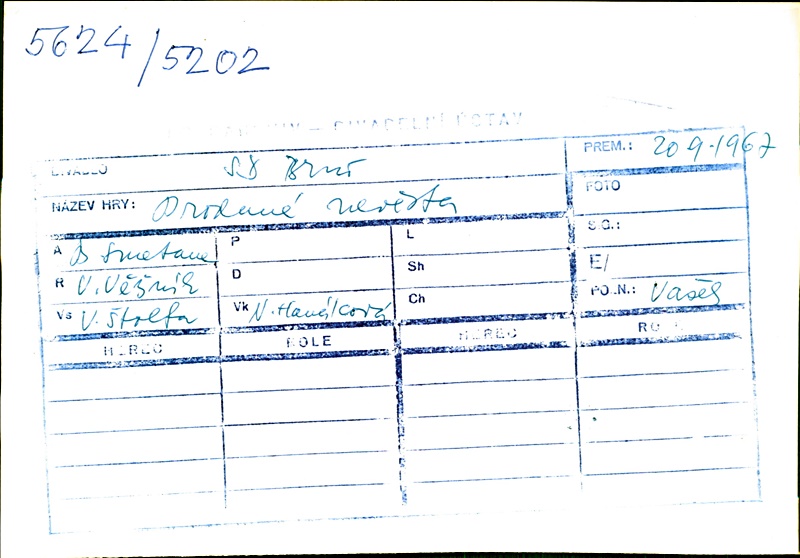 5624/5202
DIVADELNÍ ÚSTAV
DIVADLO SD Brno
PREM.: 20 9·1967
NÁZEV HRY: Prodaná nevěsta
FOTO
A B Smetana
P
L
S.G.:
R V. Věžník
D
Sh
E/
Vs V. Štolfa
Vk N. Hanáková
Ch
PO.N.: Vašek
HEREC ROLE HEREC ROLE